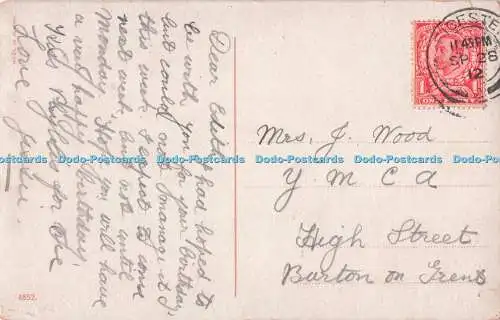 Dear Edith, I had hoped to
be with you for your birthday
but could not manage it
this week. I expect to come
next week, but not until
Monday. Hope you will have
a very happy birthday.
Love
Mrs. J. Wood
Y M C A
High Street
Burton on Trent
CESTE
11.45 PM
SP 28
12
4852.
Dodo-Postcards Dodo-Postcards Dodo-Postcards Dodo-Postcards Dodo-Postcards Dodo-Postcards